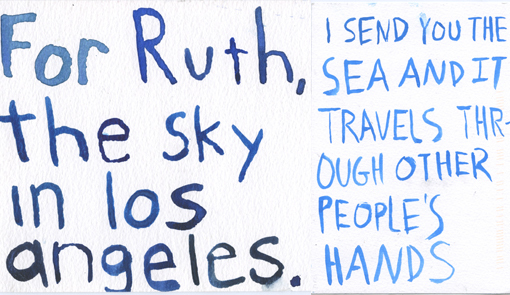 For Ruth,
the sky
in los
angeles.
I SEND YOU THE
SEA AND IT
TRAVELS THR-
OUGH OTHER
PEOPLE'S
HANDS